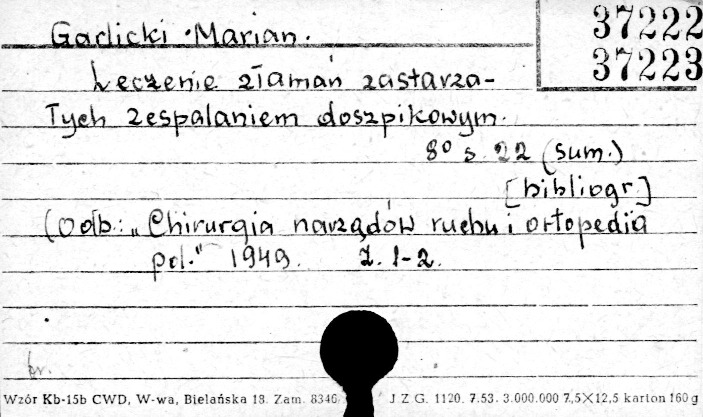 Garlicki Marian.
37222
37223
Leczenie złamań zastarza-
łych zespalaniem doszpikowym.
8° s. 22 (sum.)
[bibliogr.]
(Odb.: „Chirurgia narządów ruchu i ortopedia
pol." 1949. Z. 1-2.
kr.
Wzór Kb-15b CWD, W-wa, Bielańska 18. Zam. 8346. J Z G. 1120. 7.53. 3.000.000 7,5×12,5 karton 160 g